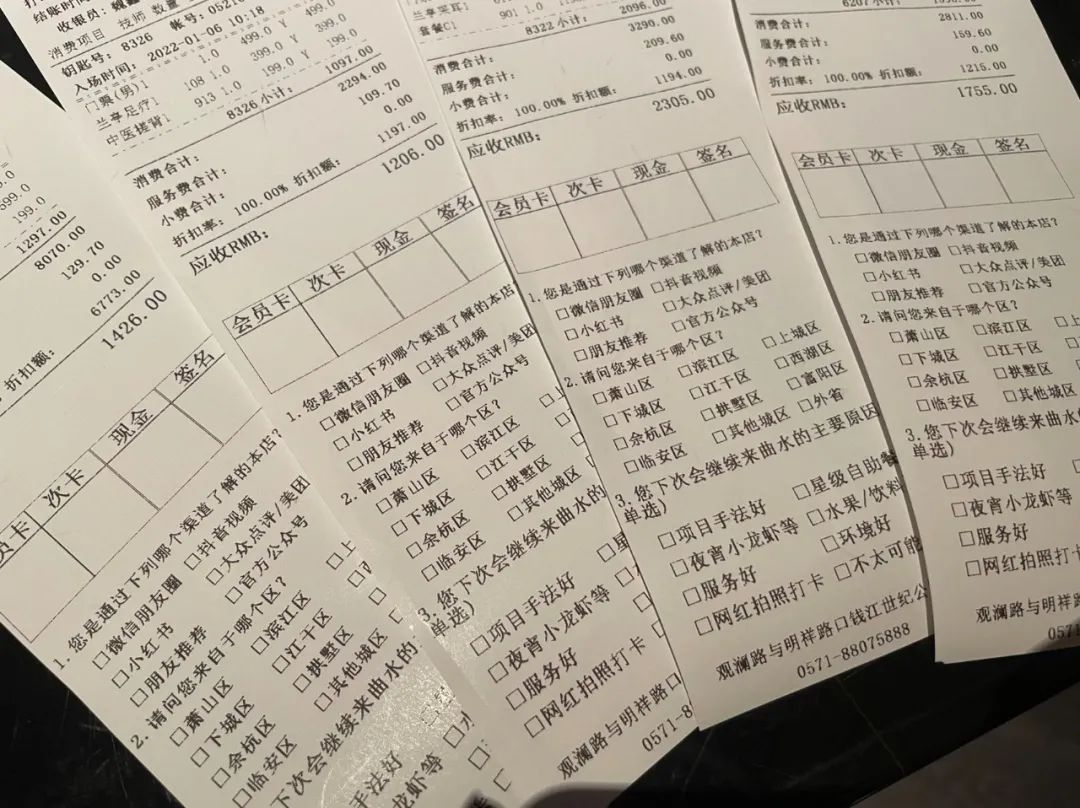 99.0
199.0
1297.00
8070.00
129.70
0.00
6773.00
折扣额:
1426.00
员卡 次卡 现金 签名
1.您是通过下列哪个渠道了解的本店?
□微信朋友圈 □抖音视频
□小红书 □大众点评/美团
□朋友推荐 □官方公众号
2.请问您来自于哪个区?
□萧山区 □滨江区 □上
□下城区 □江干区
□余杭区 □拱墅区
□临安区 □其他城区
下次会继续来曲水的
手法好
龙虾等
结账时间
收银员:
消费项目 技师 数量
钥匙号: 8326 帐号: 0521
入场时间: 2022-01-06 10:18
门票(男)1 1.0 499.0 499.0
兰享足疗1 108 1.0 399.0 Y 399.0
中医搓背1 913 1.0 199.0 Y 199.0
8326小计: 1097.00
消费合计: 2294.00
服务费合计: 109.70
小费合计: 0.00
折扣率: 100.00% 折扣额: 1197.00
应收RMB: 1206.00
会员卡 次卡 现金 签名
1.您是通过下列哪个渠道了解的本店
□微信朋友圈 □抖音视频
□小红书 □大众点评/美团
□朋友推荐 □官方公众号
2.请问您来自于哪个区?
□萧山区 □滨江区 □上
□下城区 □江干区
□余杭区 □拱墅区
□临安区 □其他城区
3.您下次会继续来曲水的
单选)
□项目手法好 □星
□夜宵小龙虾等
□服务好
□网红拍照打卡
观澜路与明祥路口
0571-8
兰享采耳1
套餐C1 901 1.0
8322小计: 2096.00
消费合计: 3290.00
服务费合计: 209.60
小费合计: 0.00
折扣率: 100.00% 折扣额: 1194.00
应收RMB: 2305.00
会员卡 次卡 现金 签名
1.您是通过下列哪个渠道了解的本店?
□微信朋友圈 □抖音视频
□小红书 □大众点评/美团
□朋友推荐 □官方公众号
2.请问您来自于哪个区?
□萧山区 □滨江区 □上城区
□下城区 □江干区 □西湖区
□余杭区 □拱墅区 □富阳区
□临安区 □其他城区 □外省
3.您下次会继续来曲水的主要原因
单选)
□项目手法好 □星级自助餐
□夜宵小龙虾等 □水果/饮料
□服务好 □环境好
□网红拍照打卡 □不太可能
观澜路与明祥路口钱江世纪公
0571-88075888
6207小计:
消费合计: 2811.00
服务费合计: 159.60
小费合计: 0.00
折扣率: 100.00% 折扣额: 1215.00
应收RMB: 1755.00
会员卡 次卡 现金 签名
1.您是通过下列哪个渠道了解的本店?
□微信朋友圈 □抖音视频
□小红书 □大众点评/美团
□朋友推荐 □官方公众号
2.请问您来自于哪个区?
□萧山区 □滨江区 □上
□下城区 □江干区
□余杭区 □拱墅区
□临安区 □其他城区
3.您下次会继续来曲水
单选)
□项目手法好
□夜宵小龙虾等
□服务好
□网红拍照打卡
观澜路与明祥路
0571